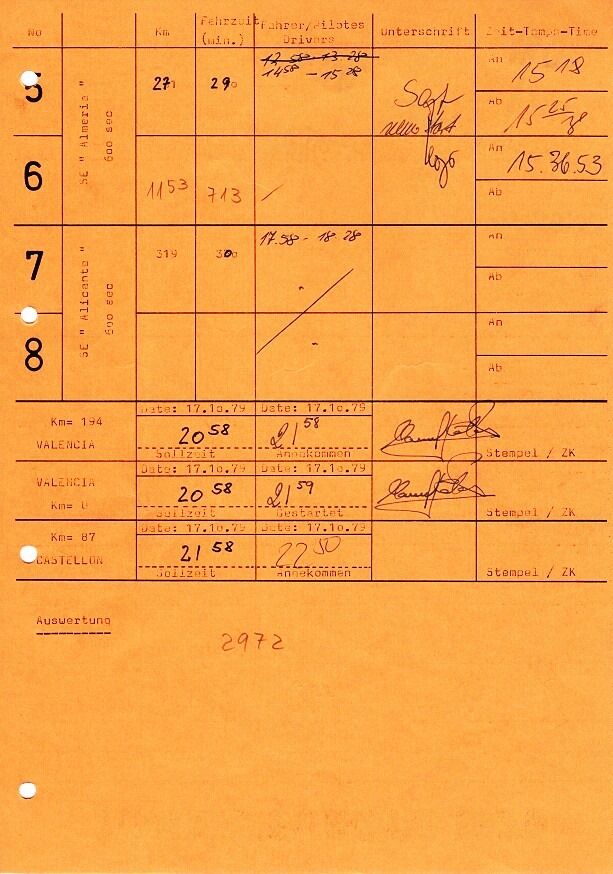 No Km Fahrzeit (min.) Fahrer/Pilotes Drivers Unterschrift Zeit-Temps-Time
5
SE " Almeria "
600 sec
27 29
12 58 - 13 28
14 58 - 15 28
An 15 18
Ab 15 25
neue
6
1153 713
An 15.36.53
Ab
7
SE " Alicante "
600 sec
319 30
17.58 - 18 28
An
Ab
8
An
Ab
Km= 194
VALENCIA
Date: 17.10.79 Date: 17.10.79
20 58 21 58
Sollzeit Angekommen Stempel / ZK
VALENCIA
Km= 0
Date: 17.10.79 Date: 17.10.79
20 58 21 59
Sollzeit Gestartet Stempel / ZK
Km= 87
CASTELLON
Date: 17.10.79 Date: 17.10.79
21 58 22 50
Sollzeit Angekommen Stempel / ZK
Auswertung
2972